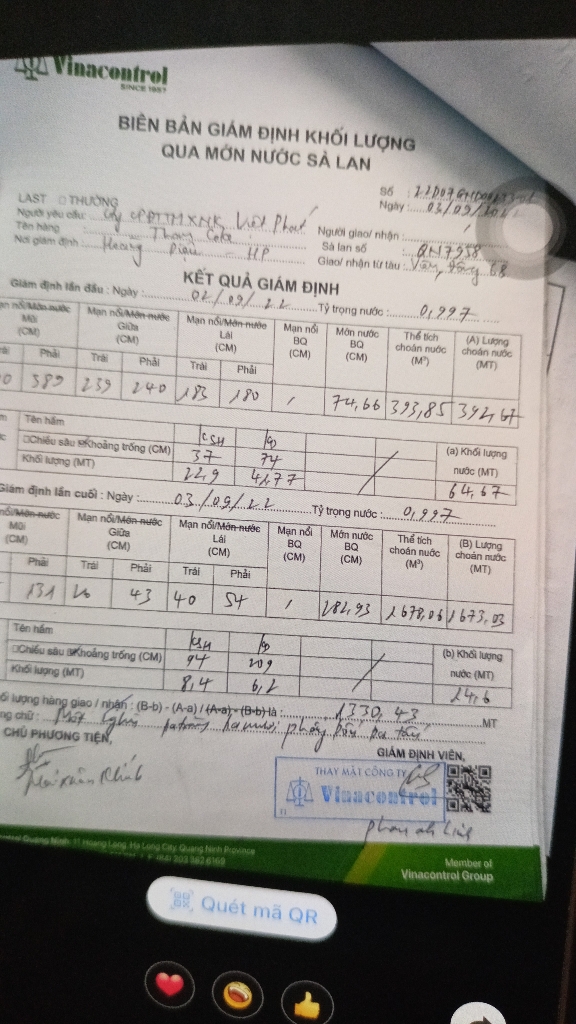 Vinacontrol
SINCE 1957
BIÊN BẢN GIÁM ĐỊNH KHỐI LƯỢNG
QUA MỚN NƯỚC SÀ LAN
Số :
Ngày : 03/09/
LAST THƯỜNG
Người yêu cầu: Cty CPĐTTMXNK Việt Phát
Người giao/ nhận :
Tên hàng Than Coke
Sà lan số : QN7958
Nơi giám định Hoàng Diệu - HP
Giao/ nhận từ tàu : 68
KẾT QUẢ GIÁM ĐỊNH
Giám định lần đầu : Ngày : 02/09/22 Tỷ trọng nước : 0,997
nổi/Món nước Mũi (CM)
Mạn nổi/Món nước Giữa (CM)
Mạn nổi/Món nước Lái (CM)
Mạn nổi BQ (CM)
Món nước BQ (CM)
Thể tích choán nước (M³)
(A) Lượng choán nước (MT)
Phải Trái Phải Trái Phải
389 239 240 183 180 74,66 393,85 392,67
Tên hầm
Chiều sâu Khoảng trống (CM) 37 74
Khối lượng (MT) 22,9 41,77
(a) Khối lượng nước (MT)
64,67
Giám định lần cuối : Ngày : 03/09/22 Tỷ trọng nước : 0,997
nổi/Món nước Mũi (CM)
Mạn nổi/Món nước Giữa (CM)
Mạn nổi/Món nước Lái (CM)
Mạn nổi BQ (CM)
Món nước BQ (CM)
Thể tích choán nước (M³)
(B) Lượng choán nước (MT)
Phải Trái Phải Trái Phải
131 26 43 40 54 282,93 1678,06 1673,03
Tên hầm
Chiều sâu Khoảng trống (CM) 94 209
Khối lượng (MT) 8,4 6,2
(b) Khối lượng nước (MT)
14,6
lượng hàng giao / nhận : (B-b) - (A-a) / (A-a) - (B-b) là : 1330,43 MT
chữ : Một nghìn ba trăm ba mươi phẩy bốn ba tấn
CHỦ PHƯƠNG TIỆN,
GIÁM ĐỊNH VIÊN,
THAY MẶT CÔNG TY
Vinacontrol
Quang Ninh: 11 Hoang Long, Ha Long City, Quang Ninh Province
Member of
Vinacontrol Group
Quét mã QR